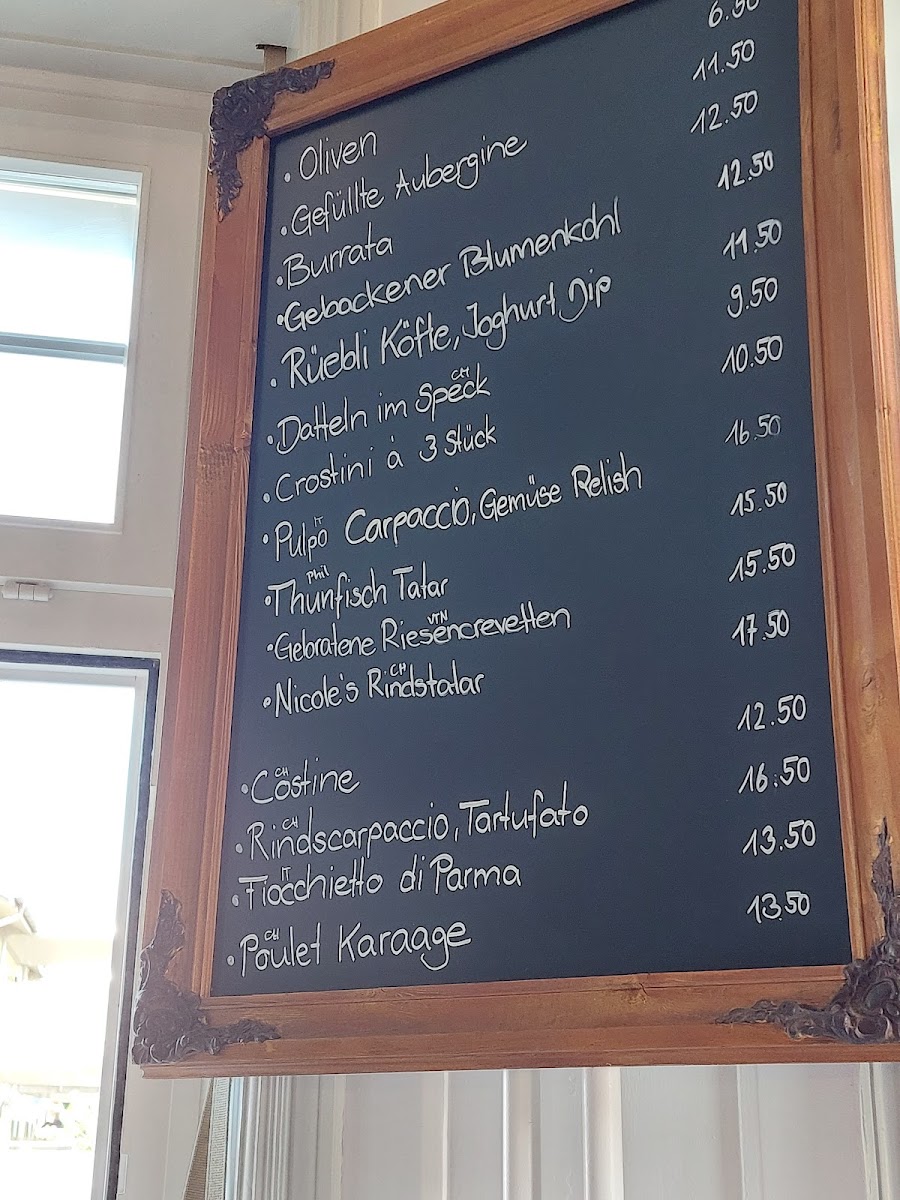 · Oliven 6.50
· Gefüllte Aubergine 11.50
· Burrata 12.50
· Gebackener Blumenkohl 12.50
· Rüebli Köfte, Joghurt Dip 11.50
CH
· Datteln im Speck 9.50
· Crostini à 3 Stück 10.50
IT
· Pulpo Carpaccio, Gemüse Relish 16.50
Phil
· Thunfisch Tatar 15.50
VTN
· Gebratene Riesencrevetten 15.50
CH
· Nicole's Rindstatar 17.50
CH
· Costine 12.50
CH
· Rindscarpaccio, Tartufato 16.50
IT
· Fiocchietto di Parma 13.50
CH
· Poulet Karaage 13.50